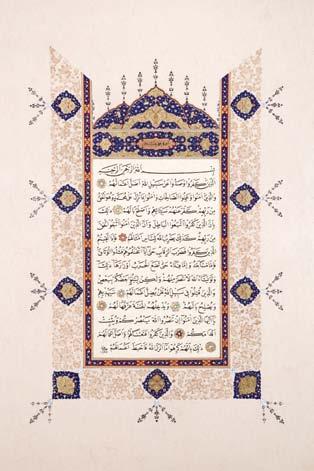 بسم الله الرحمن الرحيم
الَّذِينَ كَفَرُوا وَصَدُّوا عَن سَبِيلِ اللَّهِ أَضَلَّ أَعْمَالَهُمْ
وَالَّذِينَ آمَنُوا وَعَمِلُوا الصَّالِحَاتِ وَآمَنُوا بِمَا نُزِّلَ عَلَى مُحَمَّدٍ وَهُوَ الْحَقُّ
مِن رَّبِّهِمْ كَفَّرَ عَنْهُمْ سَيِّئَاتِهِمْ وَأَصْلَحَ بَالَهُمْ ذَلِكَ بِأَنَّ
الَّذِينَ كَفَرُوا اتَّبَعُوا الْبَاطِلَ وَأَنَّ الَّذِينَ آمَنُوا اتَّبَعُوا الْحَقَّ
مِن رَّبِّهِمْ كَذَلِكَ يَضْرِبُ اللَّهُ لِلنَّاسِ أَمْثَالَهُمْ فَإِذَا لَقِيتُمُ
الَّذِينَ كَفَرُوا فَضَرْبَ الرِّقَابِ حَتَّى إِذَا أَثْخَنتُمُوهُمْ فَشُدُّوا الْوَثَاقَ
فَإِمَّا مَنًّا بَعْدُ وَإِمَّا فِدَاءً حَتَّى تَضَعَ الْحَرْبُ أَوْزَارَهَا ذَلِكَ
وَلَوْ يَشَاءُ اللَّهُ لَانتَصَرَ مِنْهُمْ وَلَكِن لِّيَبْلُوَ بَعْضَكُم بِبَعْضٍ
وَالَّذِينَ قُتِلُوا فِي سَبِيلِ اللَّهِ فَلَن يُضِلَّ أَعْمَالَهُمْ سَيَهْدِيهِمْ
وَيُصْلِحُ بَالَهُمْ وَيُدْخِلُهُمُ الْجَنَّةَ عَرَّفَهَا لَهُمْ
يَا أَيُّهَا الَّذِينَ آمَنُوا إِن تَنصُرُوا اللَّهَ يَنصُرْكُمْ وَيُثَبِّتْ
أَقْدَامَكُمْ وَالَّذِينَ كَفَرُوا فَتَعْسًا لَّهُمْ وَأَضَلَّ أَعْمَالَهُمْ
ذَلِكَ بِأَنَّهُمْ كَرِهُوا مَا أَنزَلَ اللَّهُ فَأَحْبَطَ أَعْمَالَهُمْ